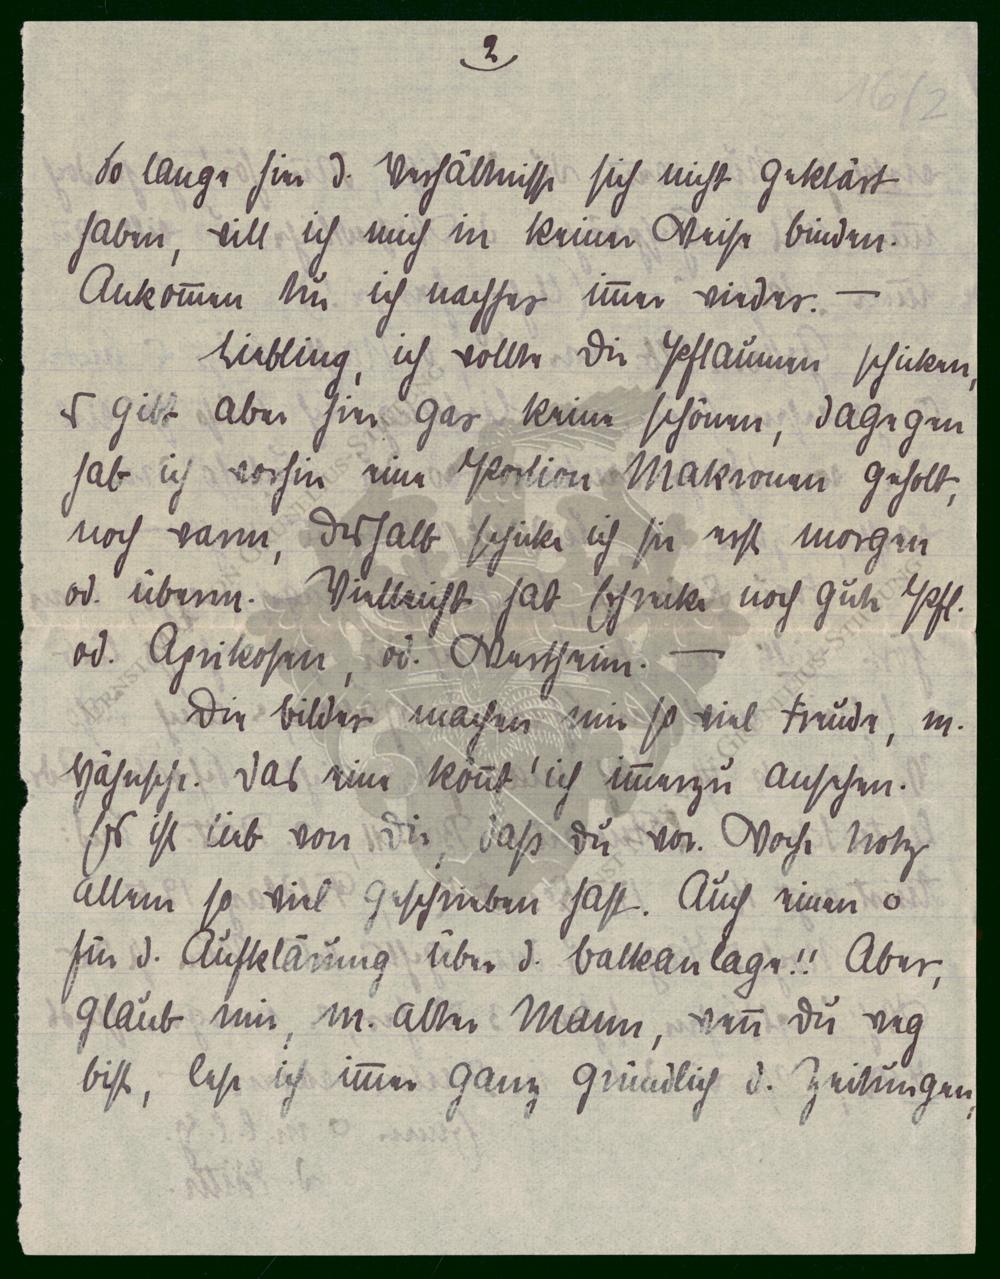 2
16/2
So lange hier d. Verhältnisse sich nicht geklärt
haben, will ich mich in keiner Weise binden.
Ankom̄en tu ich nachher im̄er wieder. —
Liebling, ich wollte Dir Pflaumen schicken,
es gibt aber hier gar keine schönen, dagegen
hab ich vorhin eine Portion Makronen geholt,
noch warm, deshalb schicke ich sie erst morgen
od. überm. Vielleicht hat Schrecke noch gute Pfl.
od. Aprikosen, od. Wertheim. —
Die Bilder machen mir so viel Freude, m.
Hähnsche. Das eine kön̄t' ich im̄erzu ansehen.
Es ist lieb von Dir, daß Du vor. Woche trotz
allem so viel geschrieben hast. Auch einen o
für d. Aufklärung über d. Balkanlage!! Aber,
glaub mir, m. alter Mann, wen̄ Du weg
bist, lese ich im̄er ganz gründlich d. Zeitungen,